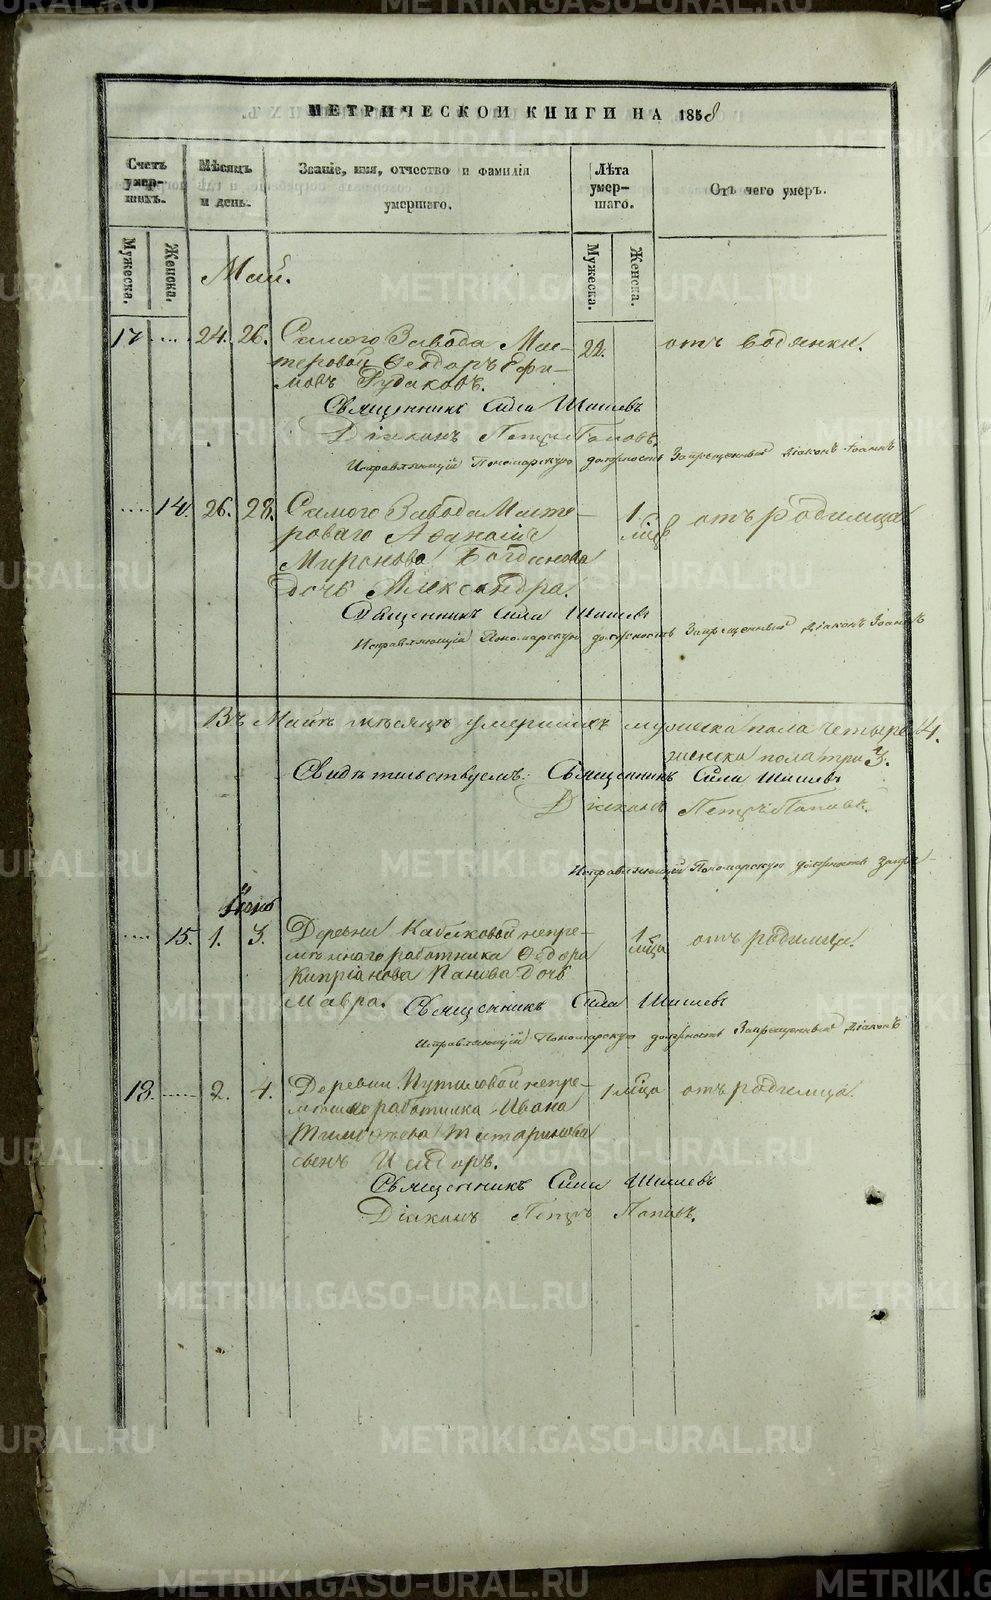 МЕТРИЧЕСКОЙ КНИГИ НА 1858
Счетъ умер-шихъ.
Мѣсяцъ и день.
Званіе, имя, отчество и фамилія умершаго.
Лѣта умер-шаго.
Отъ чего умеръ.
Мужеска.
Женска.
Мужеска.
Женска.
Май.
17 .... 24. 26. Самого Завода Мас- 22. отъ водянки.
теровой Ѳедоръ Ефи-
мовъ Рудаковъ.
Священникъ Сила Шишевъ
Діаконъ Петръ Поповъ.
Исправляющій Пономарскую должность Запрещенный діаконъ Іоаннъ
.... 14. 26. 28. Самого Завода Масте- 1. отъ родимца
роваго Аѳанасія
Миронова Богданова
дочь Александра.
Священникъ Сила Шишевъ
Исправляющій Пономарскую должность Запрещенный діаконъ Іоаннъ
Въ Маѣ мѣсяцѣ умершихъ мужеска пола четыре 4.
женска пола три 3.
Свидѣтельствуемъ: Священникъ Сила Шишевъ
Діаконъ Петръ Поповъ.
Исправляющій Пономарскую должность Запре-
Іюнь
.... 15. 1. 3. Деревни Кабаковой непре- 1 мѣца отъ родимца.
мѣннаго работника Ѳедора
Кипріанова Панова дочь
Мавра. Священникъ Сила Шишевъ
Исправляющій Пономарскую должность Запрещенный діаконъ
18. ..... 2. 4. Деревни Путиловой непре- 1 мѣца отъ родимца.
работника Ивана
Тимоѳѣева Татаринова
сынъ Исидоръ.
Священникъ Сила Шишевъ
Діаконъ Петръ Поповъ.
METRIKI.GASO-URAL.RU